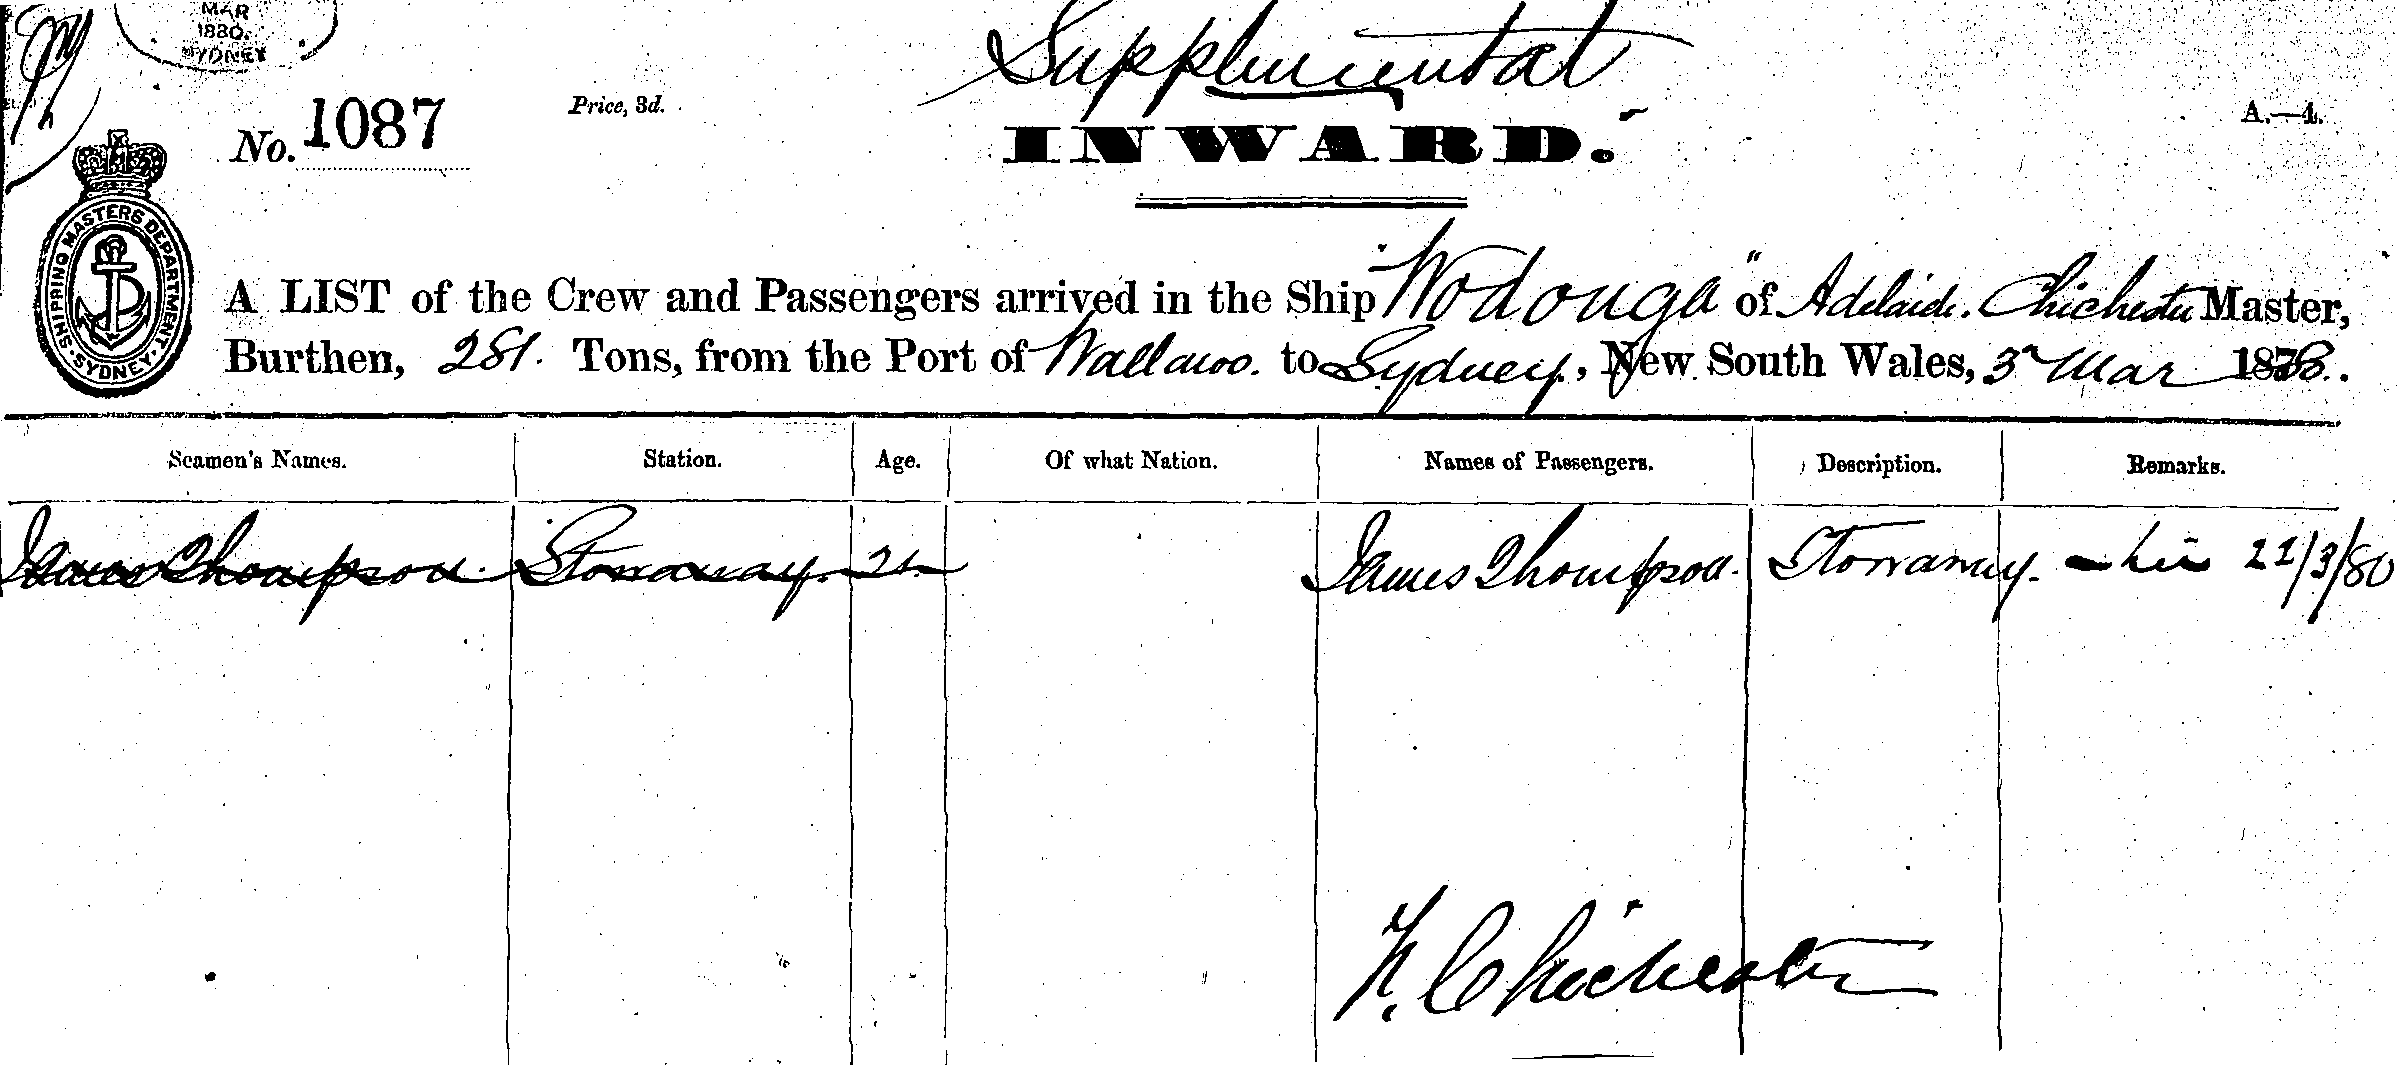 MAR
1880.
SYDNEY
Supplemental
No. 1087
Price, 3d.
A.—4.
INWARD.
SHIPPING MASTERS DEPARTMENT. SYDNEY.
A LIST of the Crew and Passengers arrived in the Ship "Wodonga" of Adelaide. Chichester Master,
Burthen, 281. Tons, from the Port of Wallaroo. to Sydney, New South Wales, 3 Mar 188
Seamen's Names. Station. Age. Of what Nation. Names of Passengers. Description. Remarks.
James Thompson. Stowaway. 21 James Thompson. Stowaway. 22/3/80
H. Chichester